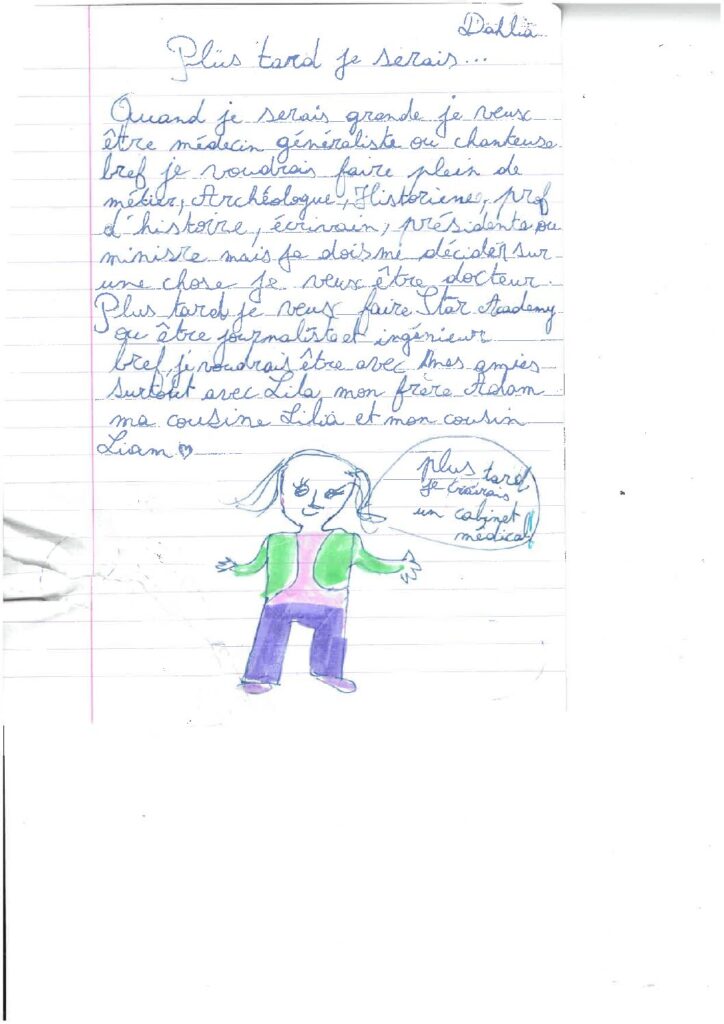 Dahlia
Plus tard je serais...
Quand je serais grande je veux
être médecin généraliste ou chanteuse
bref je voudrais faire plein de
métier, Archéologue, Historiene, prof
d'histoire, écrivain, présidente ou
ministre mais je dois me décider sur
une chose je veux être docteur.
Plus tard je veux faire Star Academy
ou être journaliste et ingénieur
bref, je voudrais être avec mes amies
surtout avec Lila mon frère Adam
ma cousine Lilia et mon cousin
Liam
plus tard
je
un cabinet
médical